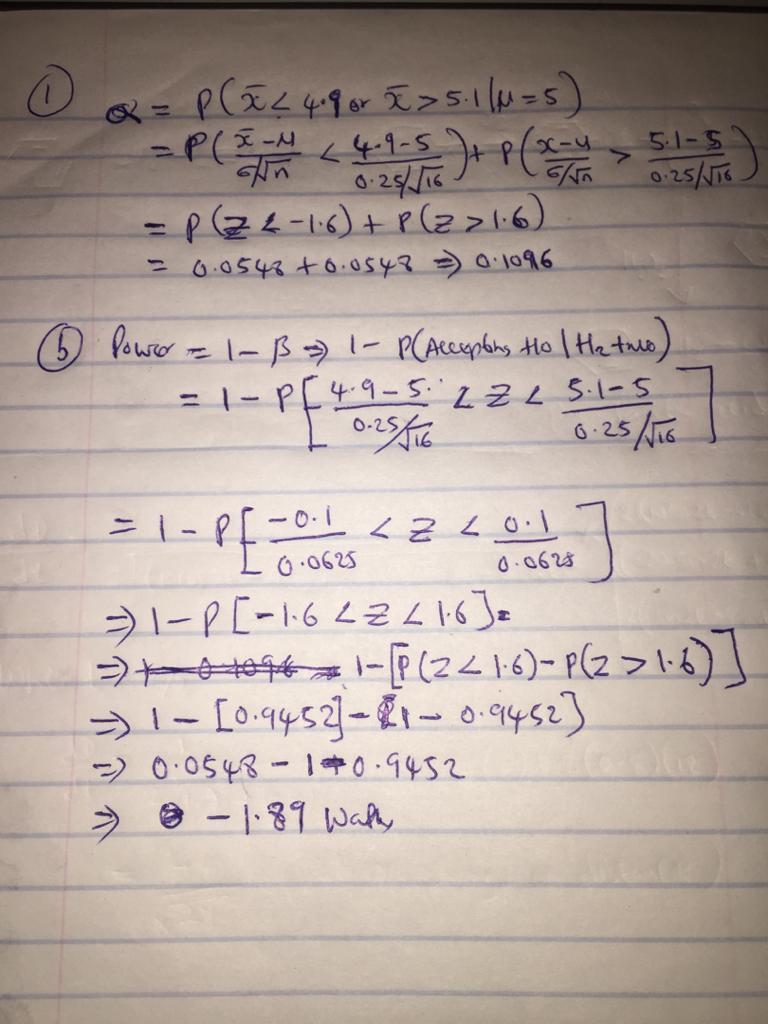 ① α = P(x̄ < 4.9 or x̄ > 5.1 | μ = 5)
= P( (x̄ - μ)/(σ/√n) < (4.9 - 5)/(0.25/√16) ) + P( (x - μ)/(σ/√n) > (5.1 - 5)/(0.25/√16) )
= P(Z < -1.6) + P(Z > 1.6)
= 0.0548 + 0.0548 ⇒ 0.1096
⑤ Power = 1 - β ⇒ 1 - P(Accepting H0 |
= 1 - P[ (4.9 - 5)/(0.25/√16) < Z < (5.1 - 5)/(0.25/√16) ]
= 1 - P[ -0.1/0.0625 < Z < 0.1/0.0625 ]
⇒ 1 - P[-1.6 < Z < 1.6] =
⇒ 1 - [P(Z < 1.6) - P(Z > 1.6)]
⇒ 1 - [0.9452] - [1 - 0.9452]
⇒ 0.0548 - 1 + 0.9452
⇒ -1.89